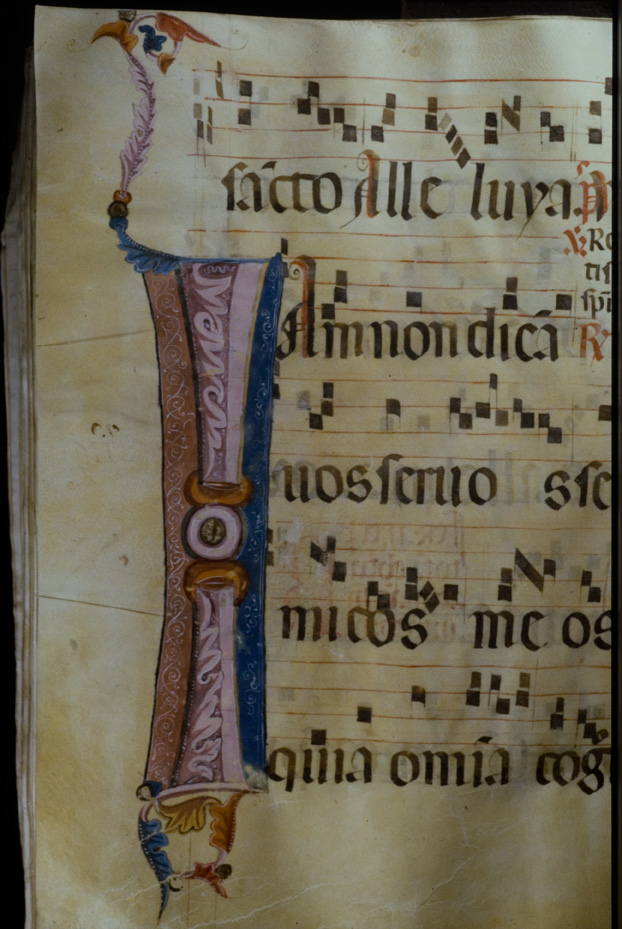 sācto Alle luya.
℣ Ro
tis
spi
IAm non dicā ℟
uos seruo s se
micos me os
quia omīa cog